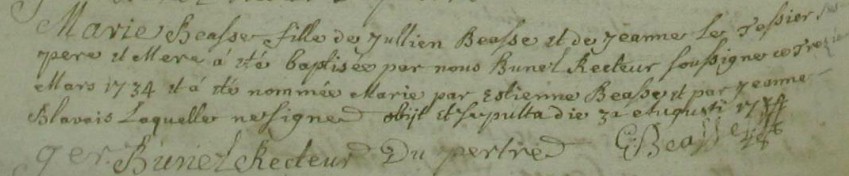 Marie Beasse fille de Jullien Beasse et de Jeanne le Tessier ses
pere et Mere á eté baptisée par nous Bunel Recteur soussigne ce
Mars 1734 et á eté nommée Marie par Estienne Beasse et par Jeanne
Blavais Laquelle ne signe obijt et sepulta die 31 augusti 1734
Bunel Recteur Du pertre E Beasse